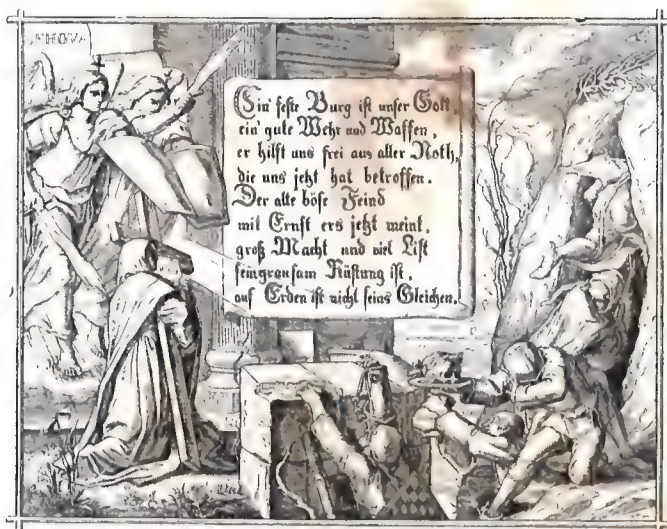 Ein' feste Burg ist unser Gott
ein' gute Wehr und Waffen,
er hilft uns frei aus aller Noth,
die uns jetzt hat betroffen.
Der alte böse Feind
mit Ernst ers jetzt meint,
groß Macht und viel List
sein grausam Rüstung ist,
auf Erden ist nicht seins Gleichen.